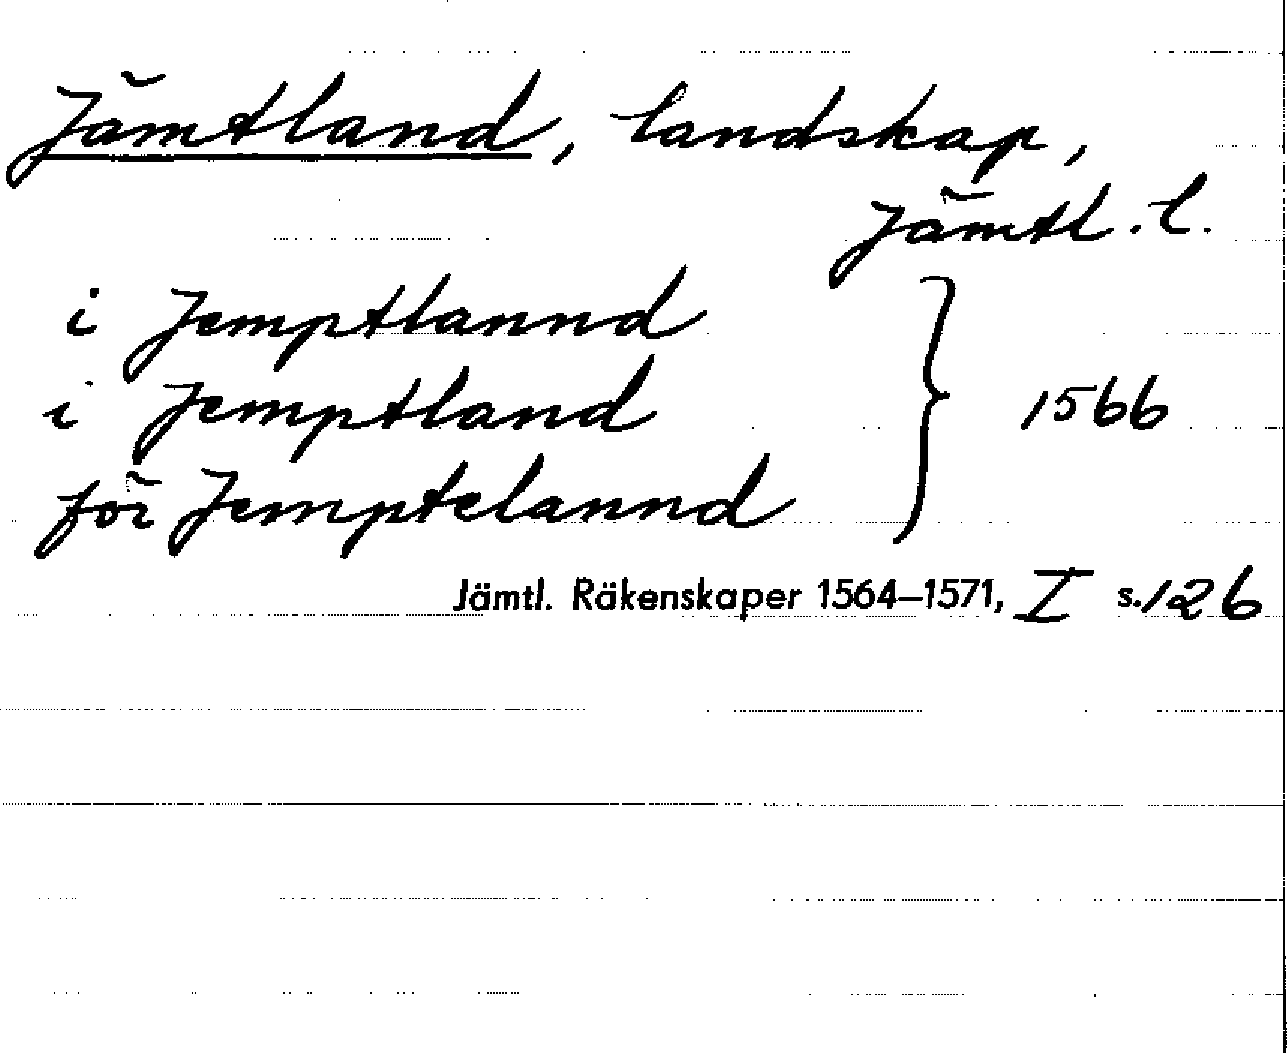 Jämtland, landskap,
Jämtl. l.
i Jemptlannd
i Jemptland } 1566
för Jemptelannd
Jämtl. Räkenskaper 1564–1571, I s. 126